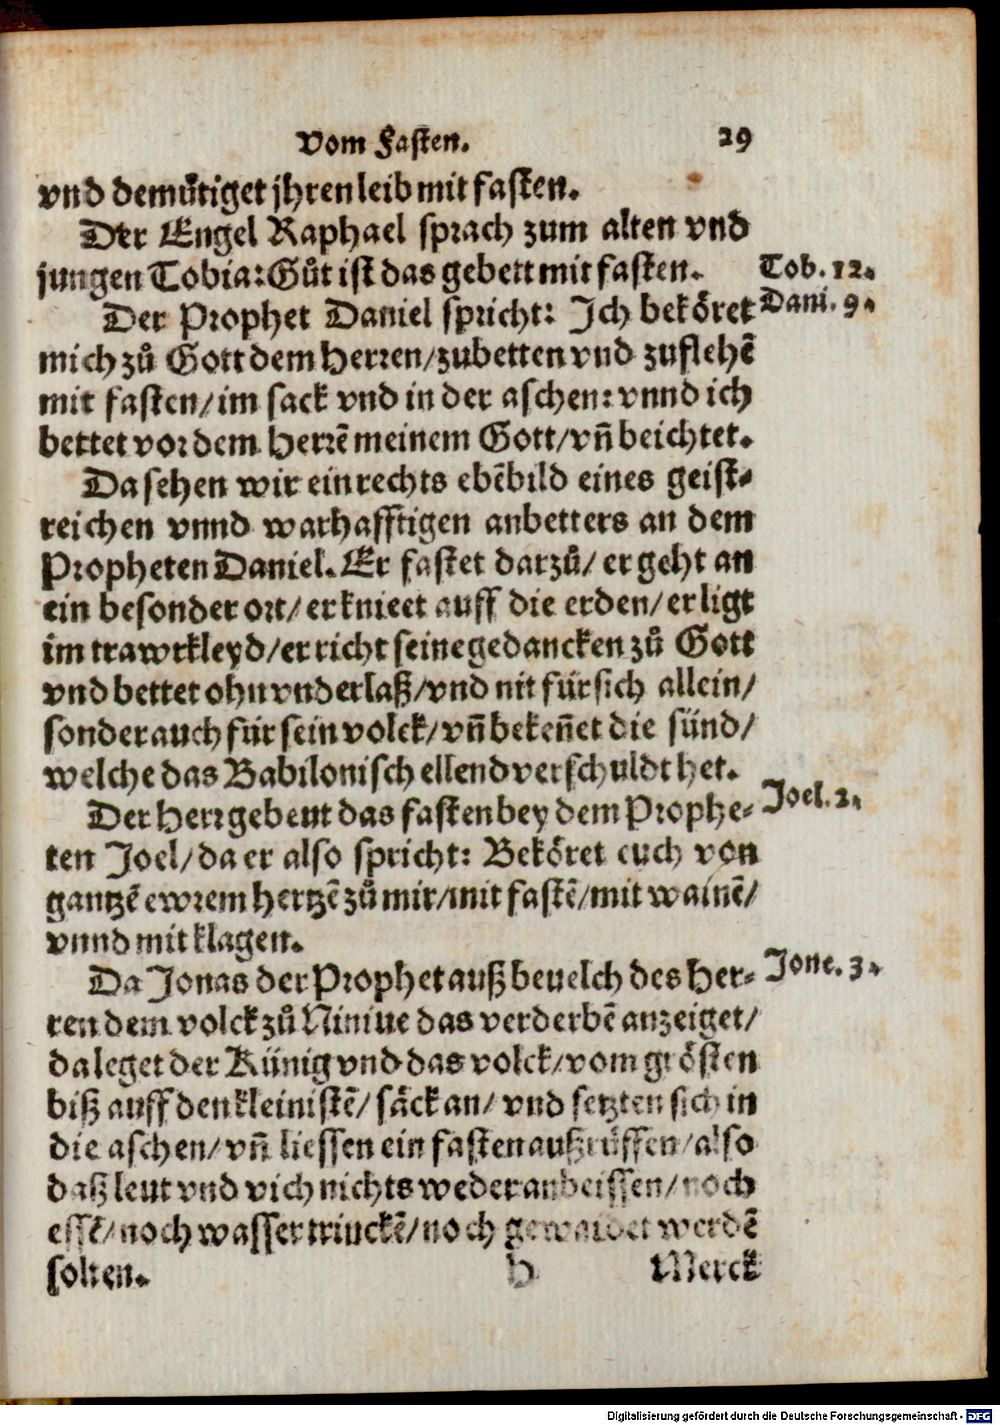 Vom Fasten. 29
vnd demuͤtiget jhren leib mit fasten.
Der Engel Raphael sprach zum alten vnd
jungen Tobia: Guͦt ist das gebett mit fasten. Tob. 12.
Der Prophet Daniel spricht: Ich bekoͤret Dani. 9.
mich zuͦ Gott dem Herren/zubetten vnd zuflehē
mit fasten/im sack vnd in der aschen: vnnd ich
bettet vor dem Herrē meinem Gott/vn̄ beichtet.
Da sehen wir ein rechts ebēbild eines geist⸗
reichen vnnd warhafftigen anbetters an dem
Propheten Daniel. Er fastet darzuͦ/ er geht an
ein besonder ort/ er knieet auff die erden/ er ligt
im trawrkleyd/er richt seine gedancken zuͦ Gott
vnd bettet ohn vnderlaß/vnd nit für sich allein/
sonder auch für sein volck/ vn̄ beken̄et die sünd/
welche das Babilonisch ellend verschuldt het.
Der Herr gebeut das fasten bey dem Prophe⸗ Joel. 2.
ten Joel/da er also spricht: Bekoͤret euch von
gantzē ewrem hertzē zuͦ mir/mit fastē/mit wainē/
vnnd mit klagen.
Da Jonas der Prophet auß beuelch des Her⸗ Jone. 3.
ren dem volck zuͦ Niniue das verderbē anzeiget/
da leget der Künig vnd das volck/vom groͤsten
biß auff den kleinistē/ saͤck an/ vnd setzten sich in
die aschen/ vn̄ liessen ein fasten außruͤffen/also
daß leut vnd vich nichts weder anbeissen/noch
essē/noch wasser trinckē/noch gewaidet werdē
solten. H Merck
Digitalisierung gefördert durch die Deutsche Forschungsgemeinschaft - DFG